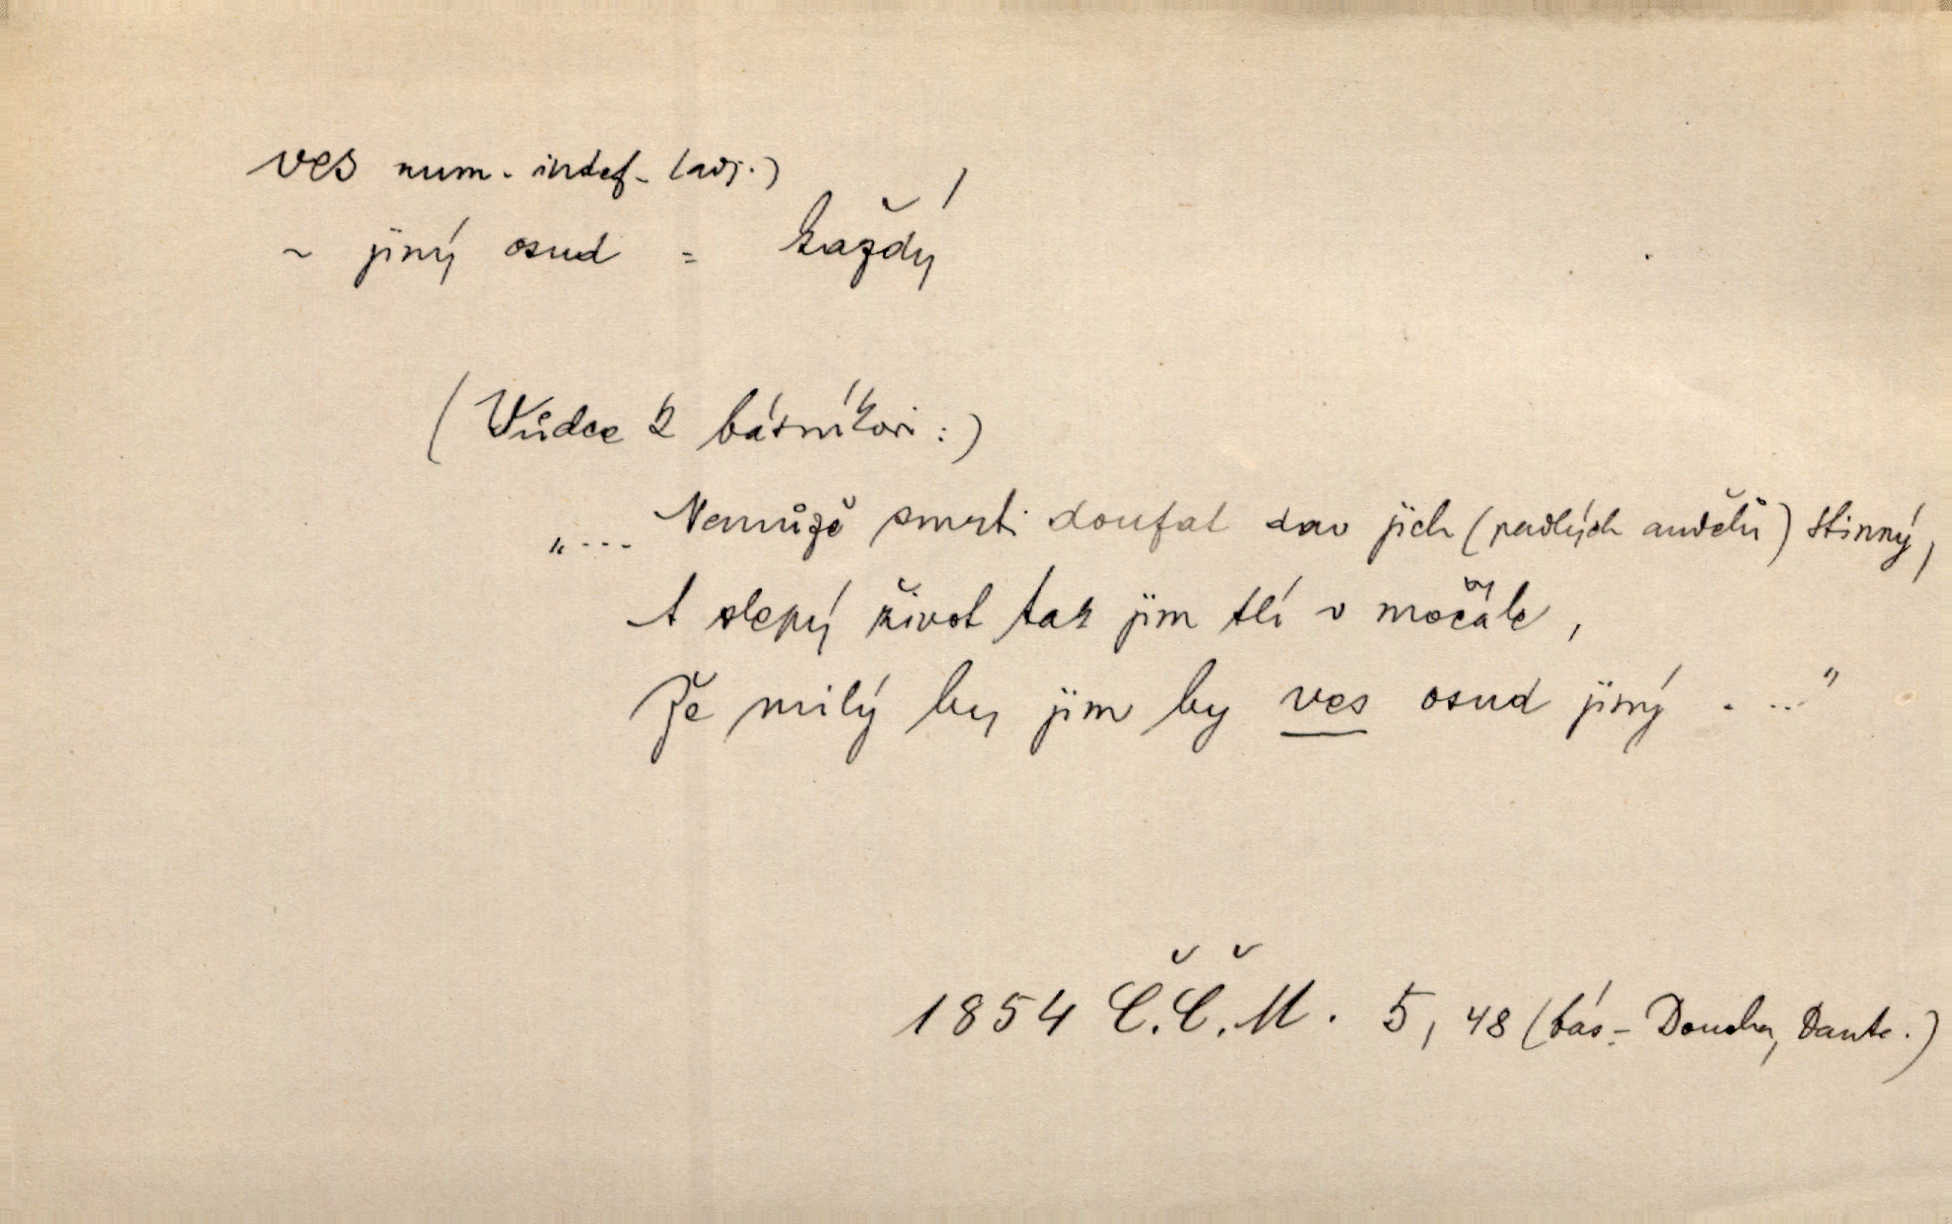 ves num. indef. (adj.)
~ jiný osud = každý
(Vůdce k básníkovi:)
„... Nemůže smrti doufat dav jich (padlých andělů) stinný,
A slepý život tak jim tlí v močále,
Že milý by jim by ves osud jiný . ..."
1854 Č.Č.M. 5, 48 (bás. - Doucha, Dante.)